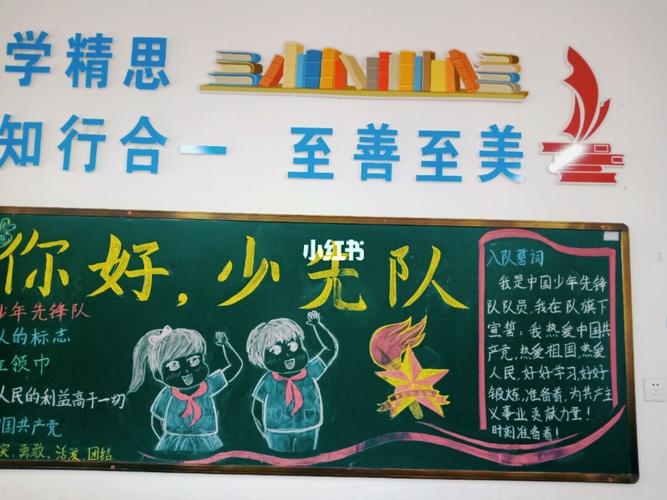 学精思
知行合一 至善至美
你好,少先队
小红书
少年先锋队
人的标志
红领巾
人民的利益高于一切
国共产党
实、勇敢、活泼、团结
入队誓词
我是中国少年先锋
队队员,我在队旗下
宣誓:我热爱中国共
产党,热爱祖国,热爱
人民,好好学习,好好
锻炼,准备着,为共产主
义事业贡献力量!
时刻准备着!